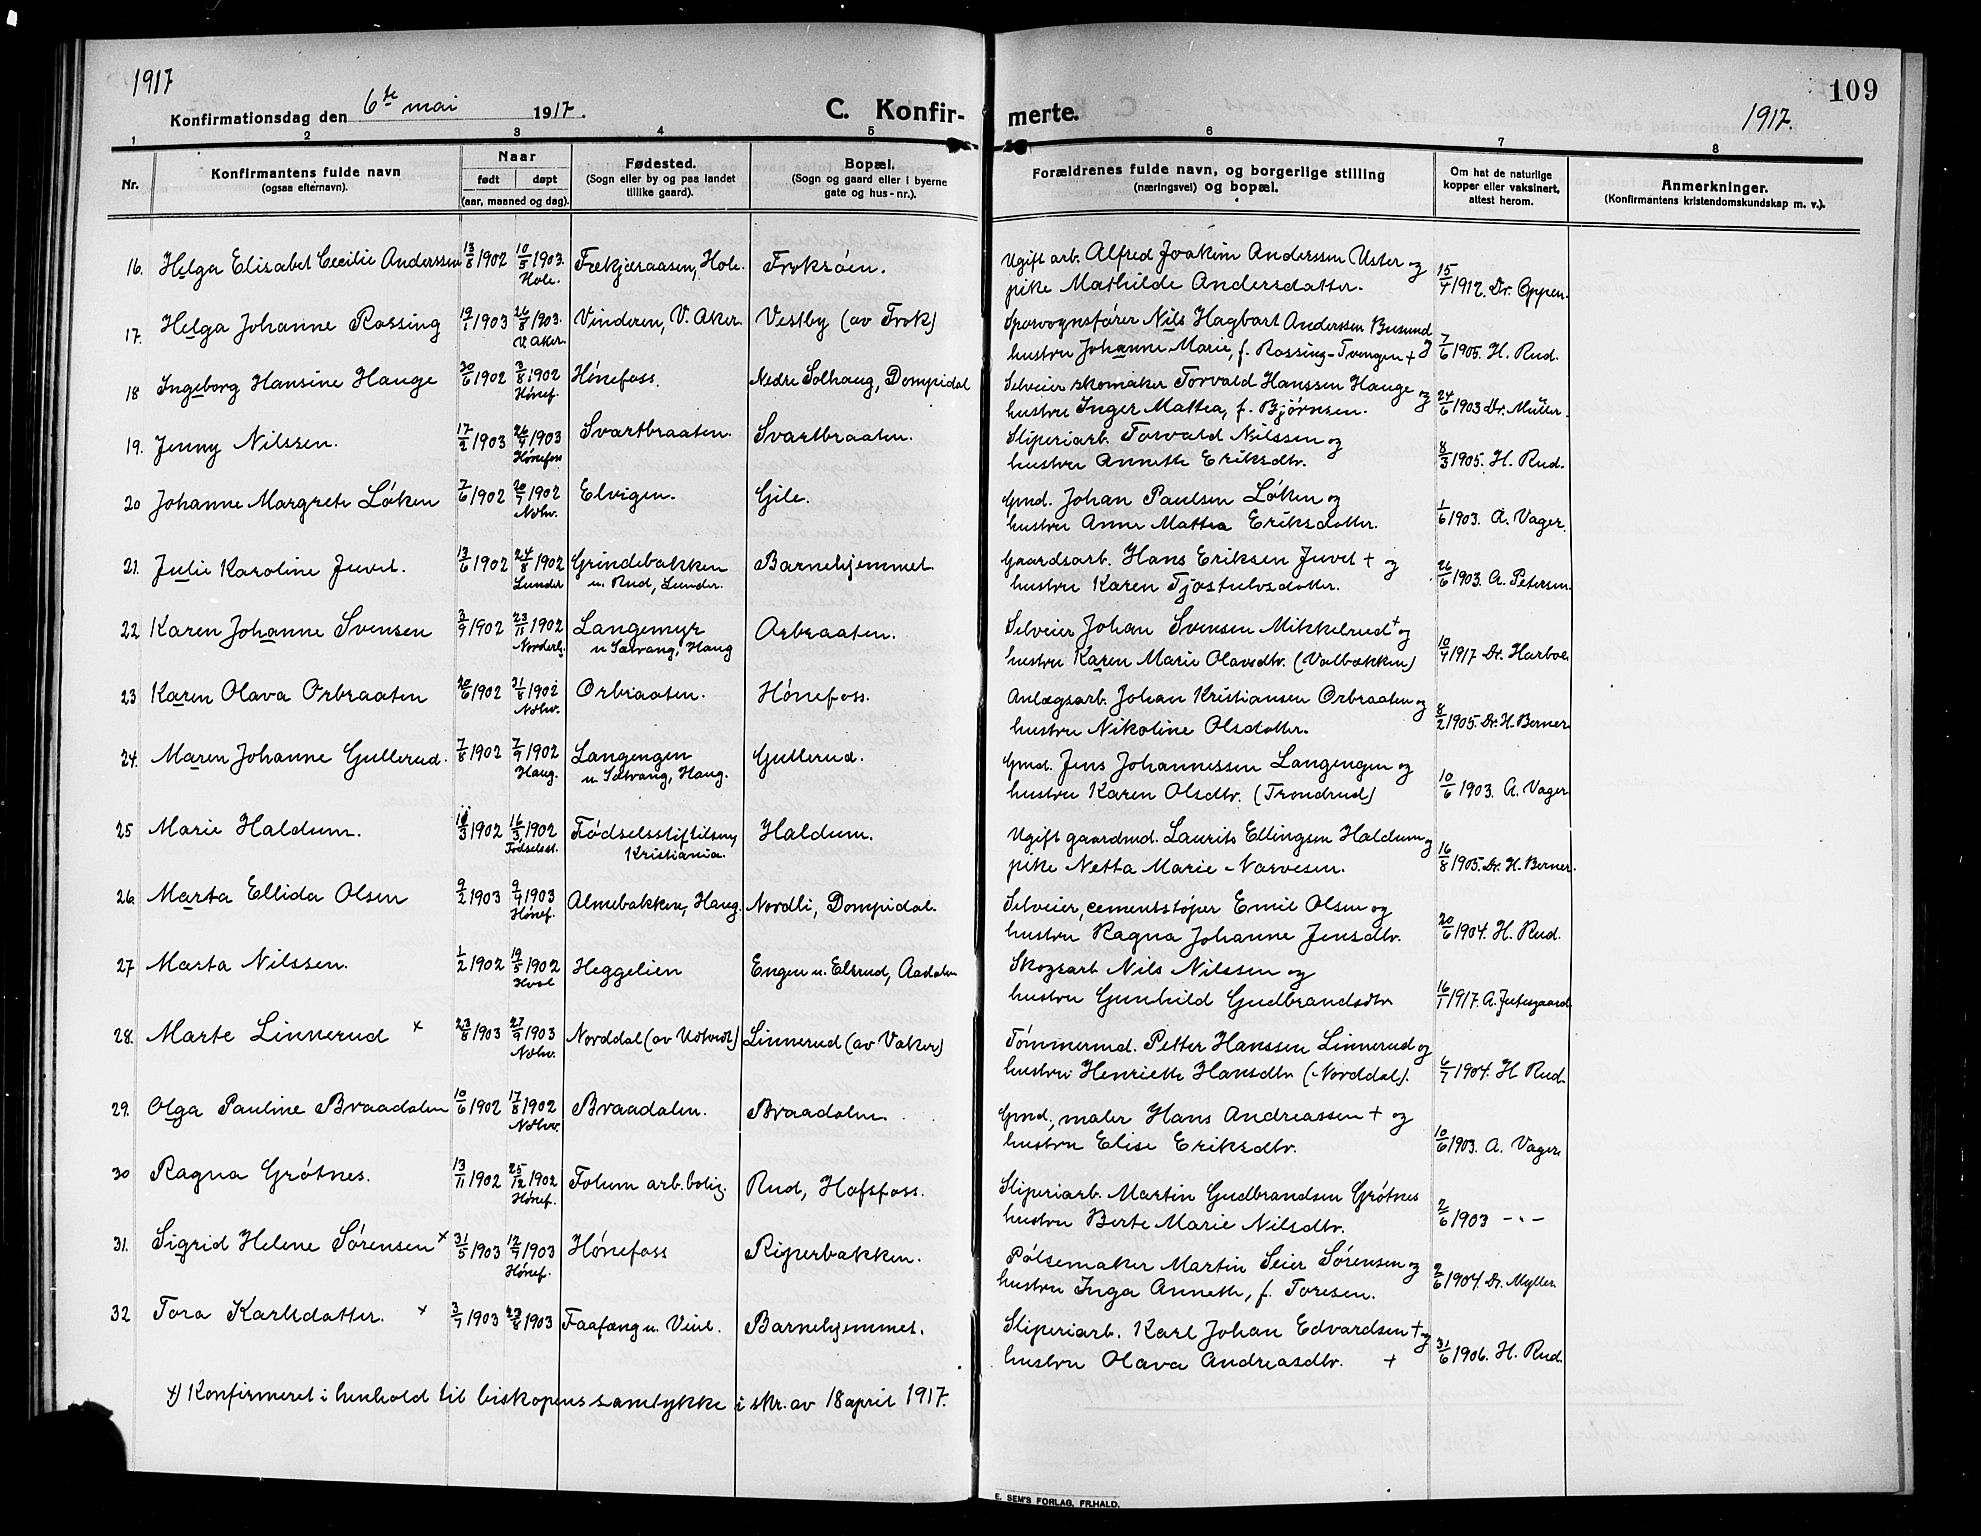 1917
Konfirmationsdag den 6te mai 1917. C. Konfir-
1 2 3 4 5
Nr. Konfirmantens fulde navn (ogsaa efternavn). Naar født døpt (aar, maaned og dag). Fødested. (Sogn eller by og paa landet tillike gaard). Bopæl. (Sogn og gaard eller i byerne gate og hus-nr.).
16. Helga Elisabet Cecilie Anderssen 13/8 1902 10/5 1903. Hole. Frekjæraasen, Hole. Froksöen.
17. Helga Johanne Rossing 19/1 1903 26/8 1903. V. Aker. Vinderen, V. Aker. Vestby (av Frok)
18 Ingeborg Hansine Hauge 30/6 1902 3/8 1902 Hönef. Hönefoss. Nedre Solhaug, Dompidal
19. Jenny Nilssen. 17/2 1903 26/4 1903 Hönefoss Svartbraaten. Svartbraaten.
20 Johanne Margrete Löken 7/6 1902 20/7 1902 Ndhv. Elvigen. Gile.
21. Julie Karoline Juvet. 13/6 1902 24/8 1902 Lunder Grindebakken u. Rud, Lunder. Barnehjemmet.
22 Karen Johanne Svensen 3/9 1902 23/11 1902 Norderh. Langemyr u Sætrang, Haug Arbraaten.
23 Karen Olava Orbraaten 20/6 1902 31/8 1902 Ndhv. Orbraaten. Hönefoss.
24. Maren Johanne Gullerud. 7/8 1902 7/9 1902 Haug. Langengen u. Sætrang, Haug. Gullerud.
25 Marie Haldum. 11/3 1902 16/3 1902 Födselsst. Födselsstiftelsen, Kristiania. Haldum.
26. Marta Ellida Olsen 9/2 1903 9/4 1903 Hönef. Almebakken, Haug. Nordli, Dompidal.
27 Marta Nilssen. 1/2 1902 19/5 1902 Hval Heggelien Engen u. Elsrud, Aadalen
28. Marte Linnerud + 23/8 1903 27/9 1903 Ndhv. Norddal (av Udtvedt) Linnerud (av Vaker)
29. Olga Pauline Braadalen 10/6 1902 17/8 1902 Ndhv. Braadalen. Braadalen.
30 Ragna Grötnes. 13/11 1902 25/12 1902 Hönef. Folum arb. bolig. Rud, Hofsfoss.
31. Sigrid Helene Sörensen + 31/5 1903 12/7 1903 Hönef. Hönefoss Riperbakken.
32 Tora Karlsdatter. + 3/7 1903 23/8 1903 Faafæng u. Veien. Barnehjemmet.
+) Konfirmeret i henhold til biskopens samtykke i skr. av 18 april 1917.
109
merte. 1917.
6 7 8
Forældrenes fulde navn, og borgerlige stilling (næringsvei) og bopæl. Om hat de naturlige kopper eller vaksinert, attest herom. Anmerkninger. (Konfirmantens kristendomskundskap m. v.).
Ugift arb. Alfred Joakim Anderssen Uster og
pike Mathilde Andersdatter. 15/4 1912. Dr. Oppen.
Sporvognsförer Nils Hagbart Anderssen Busund
hustru Johanne Marie, f. Rossing-Tvengen + 7/6 1905. H. Rud.
Selveier skomaker Torvald Hanssen Hauge og
hustru Inger Mattea, f. Bjørnsen. 24/6 1903 Dr. Müller.
Sliperiarb. Torvald Nilssen og
hustru Annette Eriksdtr. 8/3 1905. H. Rud.
Gmd. Johan Paulsen Löken og
hustru Anne Mattea Eriksdatter. 1/6 1903. A. Vager.
Gaardsarb. Hans Eriksen Juvet + og
hustru Karen Tjøstulvsdatter. 26/6 1903. A. Petersen.
Selveier Johan Svensen Mikkelrud + og
hustru Karen Marie Olavsdtr. (Valbækken) 10/4 1917 Dr. Harboe.
Anlægsarb. Johan Kristiansen Orbraaten og
hustru Nikoline Olsdatter. 8/2 1905. Dr. H. Berner
Gmd. Jens Johannessen Langengen og
hustru Karen Olsdtr. (Trondrud) 10/6 1903. A. Vager
Ugift gaardmd. Laurits Ellingsen Haldum og
pike Netta Marie Narvesen. 16/8 1905. Dr. H. Berner.
Selveier, cementstöper Emil Olsen og
hustru Ragna Johanne Jensdtr. 20/6 1904. H. Rud.
Skogsarb Nils Nilssen og
hustru Gunhild Gudbrandsdtr 16/1 1917. A. Jutesgaard
Tömmermd. Petter Hanssen Linnerud og
hustru Henriette Hansdtr (Norddal). 6/7 1904. H Rud.
Gmd., maler Hans Andreassen + og
hustru Elise Eriksdtr. 10/6 1903. A. Vager.
Sliperiarb. Martin Gudbrandsen Grötnes
hustru Berte Marie Nilsdtr. 2/6 1903 -"-
Pölsemaker Martin Seier Sörensen og
hustru Inga Annette, f. Toresen. 2/6 1904. Dr. Myller.
Sliperiarb. Karl Johan Edvardsen + og
hustru Olava Andreasdtr. + 31/6 1906. H. Rud.
E. SEM'S FORLAG, FR.HALD.